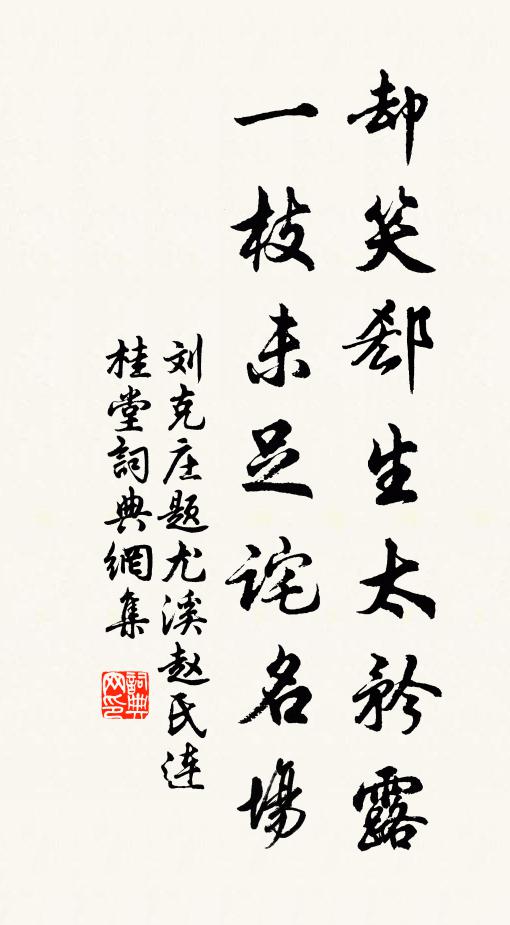 却笑郄生太矜露
一枝未足詫名場
刘克庄题尤溪赵氏连
桂堂詞典網集
詞典
网印